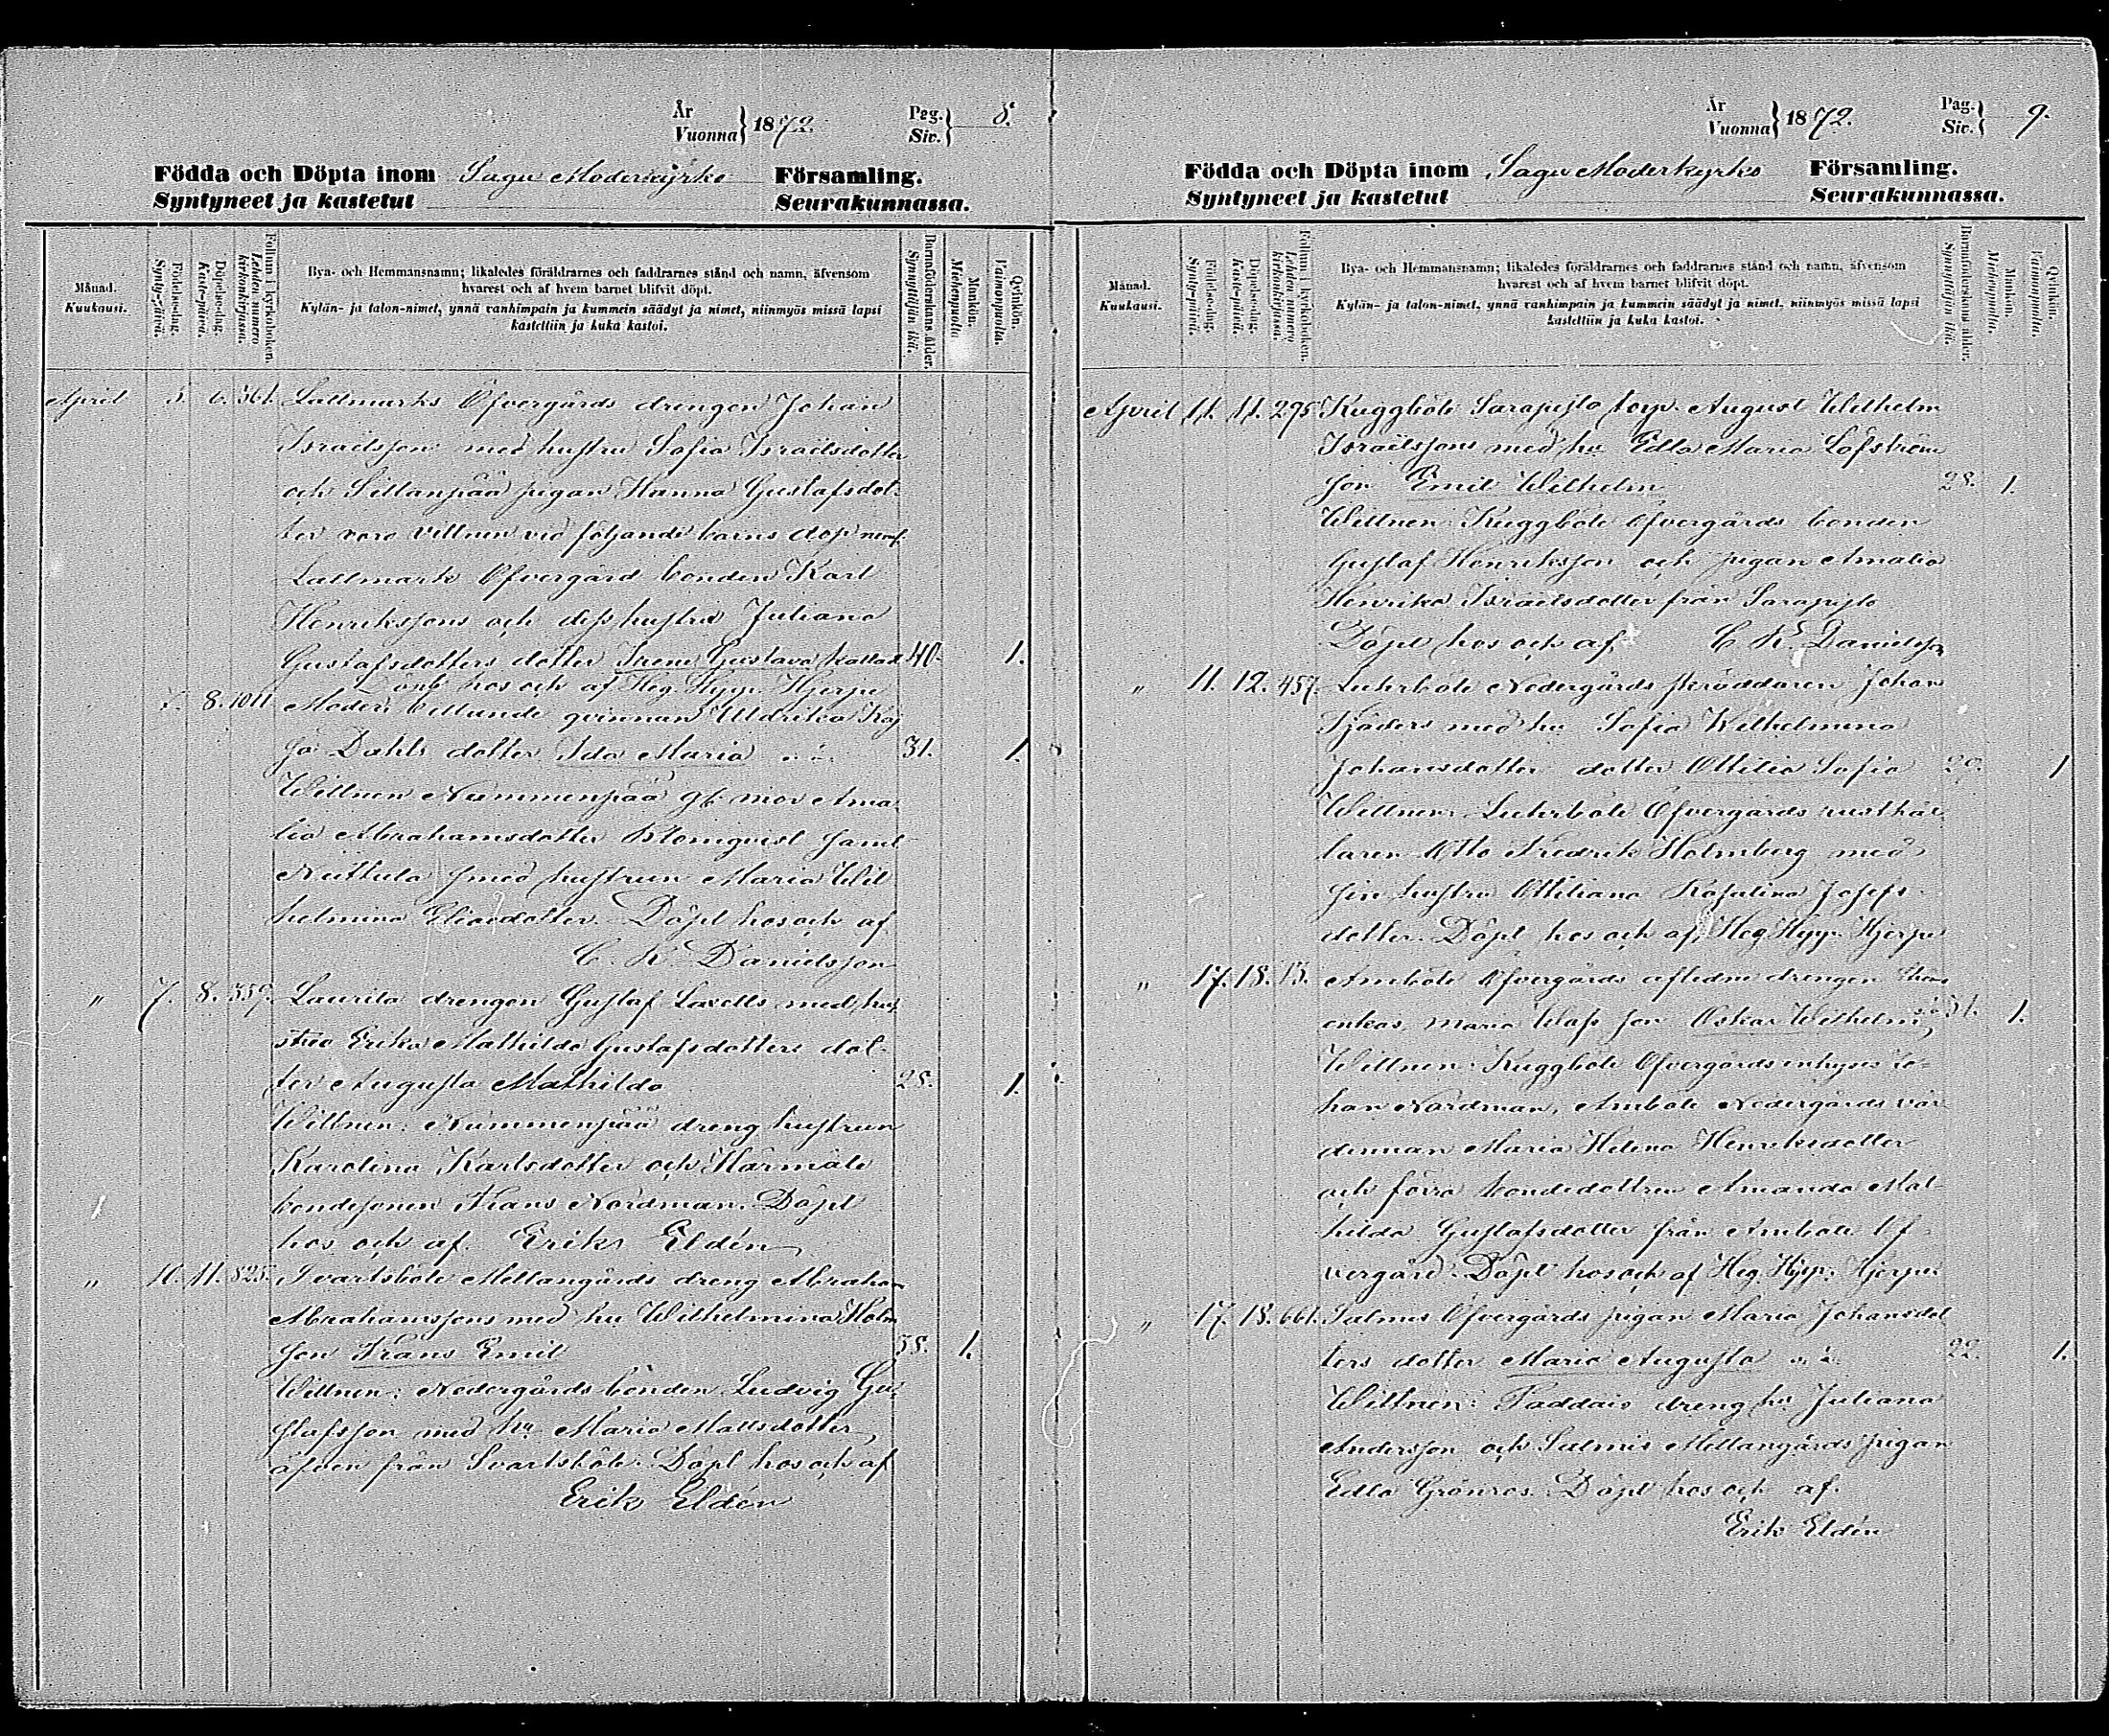 År
Vuonna } 1872. Pag.
Siv. } 8.
Födda och Döpta inom Sagu Moderkyrko Församling.
Syntyneet ja kastetut Seurakunnassa.
Månad.
Kuukausi.
Födelsedag.
Synty-päivä.
Döpelsedag.
Kaste-päivä.
Folium i kyrkoboken.
Lehden numero kirkonkirjassa.
Bya- och Hemmansnamn; likaledes föräldrarnes och faddrarnes stånd och namn, äfvensom
hvarest och af hvem barnet blifvit döpt.
Kylän- ja talon-nimet, ynnä vanhimpain ja kummein säädyt ja nimet, niinmyös missä lapsi
kastettiin ja kuka kastoi.
Barnaföderskans ålder.
Synnyttäjän ikä.
Mankön.
Miehenpuolia.
Qvinkön.
Vaimonpuolia.
April 5. 6. 361. Lallmarks Öfvergårds drengen Johan
Israelsson med hustru Sofia Israelsdotter
och Sillanpää pigan Hanna Gustafsdot-
ter voro vittnen vid följande barns dop neml.
Lallmark Öfvergård bonden Karl
Henrikssons och dess hustru Juliana
Gustafsdotters dotter Irene Gustava kallad 40. 1.
Döpt hos och af Heg. Hypp. Hjerpe
7. 8. 1011 Moderi qvinnan Uldrika Kaj
sa Dahls dotter Ida Maria o. ä. 31. 1.
Wittnen Nummenpää mor Ama
lia Abrahamsdotter Blomqvist samt
Neitkula smed hustrun Maria Wil
helmina Eliædotter. Döpt hos och af
C. K. Danielsson
" 7. 8. 359. Laurila drengen Gustaf Lavells med hu-
stru Erika Mathilda Gustafsdotters dot-
ter Augusta Mathilda 28. 1.
Wittnen: Nummenpää dreng hustrun
Karolina Karlsdotter och Härmälä
bondesonen Frans Nordman. Döpt
hos och af. Erik Eldén
" 10. 11. 825. Svartsböle Mellangårds dreng Abraham
Abrahamssons med hu Wilhelmina Holm
son Frans Emil 38. 1.
Wittnen: Nedergårds bonden Ludvig Gu-
stafsson med hu Maria Mattsdotter,
äfven från Svartsböle. Döpt hos och af
Erik Eldén
År
Vuonna } 1872. Pag.
Siv. } 9.
Födda och Döpta inom Sagu Moderkyrko Församling.
Syntyneet ja kastetut Seurakunnassa.
Månad.
Kuukausi.
Födelsedag.
Synty-päivä.
Döpelsedag.
Kaste-päivä.
Folium i kyrkoboken.
Lehden numero kirkonkirjassa.
Bya- och Hemmansnamn; likaledes föräldrarnes och faddrarnes stånd och namn, äfvensom
hvarest och af hvem barnet blifvit döpt.
Kylän- ja talon-nimet, ynnä vanhimpain ja kummein säädyt ja nimet, niinmyös missä lapsi
kastettiin ja kuka kastoi.
Barnaföderskans ålder.
Synnyttäjän ikä.
Mankön.
Miehenpuolia.
Qvinkön.
Vaimonpuolia.
April 11. 11. 295 Kuggböle Sarapisto torp. August Wilhelm
Israelssons med hu Edla Maria Löfström
son Emil Wilhelm 28. 1.
Wittnen Kuggböle Öfvergårds bonden
Gustaf Henriksson och pigan Amalia
Henrika Israelsdotter från Sarapisto
Döpt hos och af C. K. Danielsson
" 11. 12. 457. Luhrböle Nedergårds skräddaren Johan
Fjäders med hu Sofia Wilhelmina
Johansdotter dotter Ottilia Sofia 29. 1
Wittnen: Luhrböle Öfvergårds rusthål-
laren Otto Fredrik Holmberg med
sin hustru Ottiliana Rosalina Josefs-
dotter. Döpt hos och af Heg. Hypp. Hjerpe
" 17. 18. 13. Amböle Öfvergårds aflidne drengen
enkas Maria son Oskar Wilhelm, 31. 1.
Wittnen. Kuggböle Öfvergårds inhyses Jo-
han Nordman, Amböle Nedergårds vär-
dinnan Maria Helena Henriksdotter
och förra bondedottren Amanda Mat-
hilda Gustafsdotter från Amböle Öf-
vergård. Döpt hos och af Heg. Hypp. Hjerpe.
" 17. 18. 661. Salmis Öfvergårds pigan Maria Johansdot
ters dotter Maria Augusta o. ä. 22. 1.
Wittnen: Faddais dreng hu Juliana
Andersson och Salmis Mellangårds pigan
Edla Grönros. Döpt hos och af.
Erik Eldén